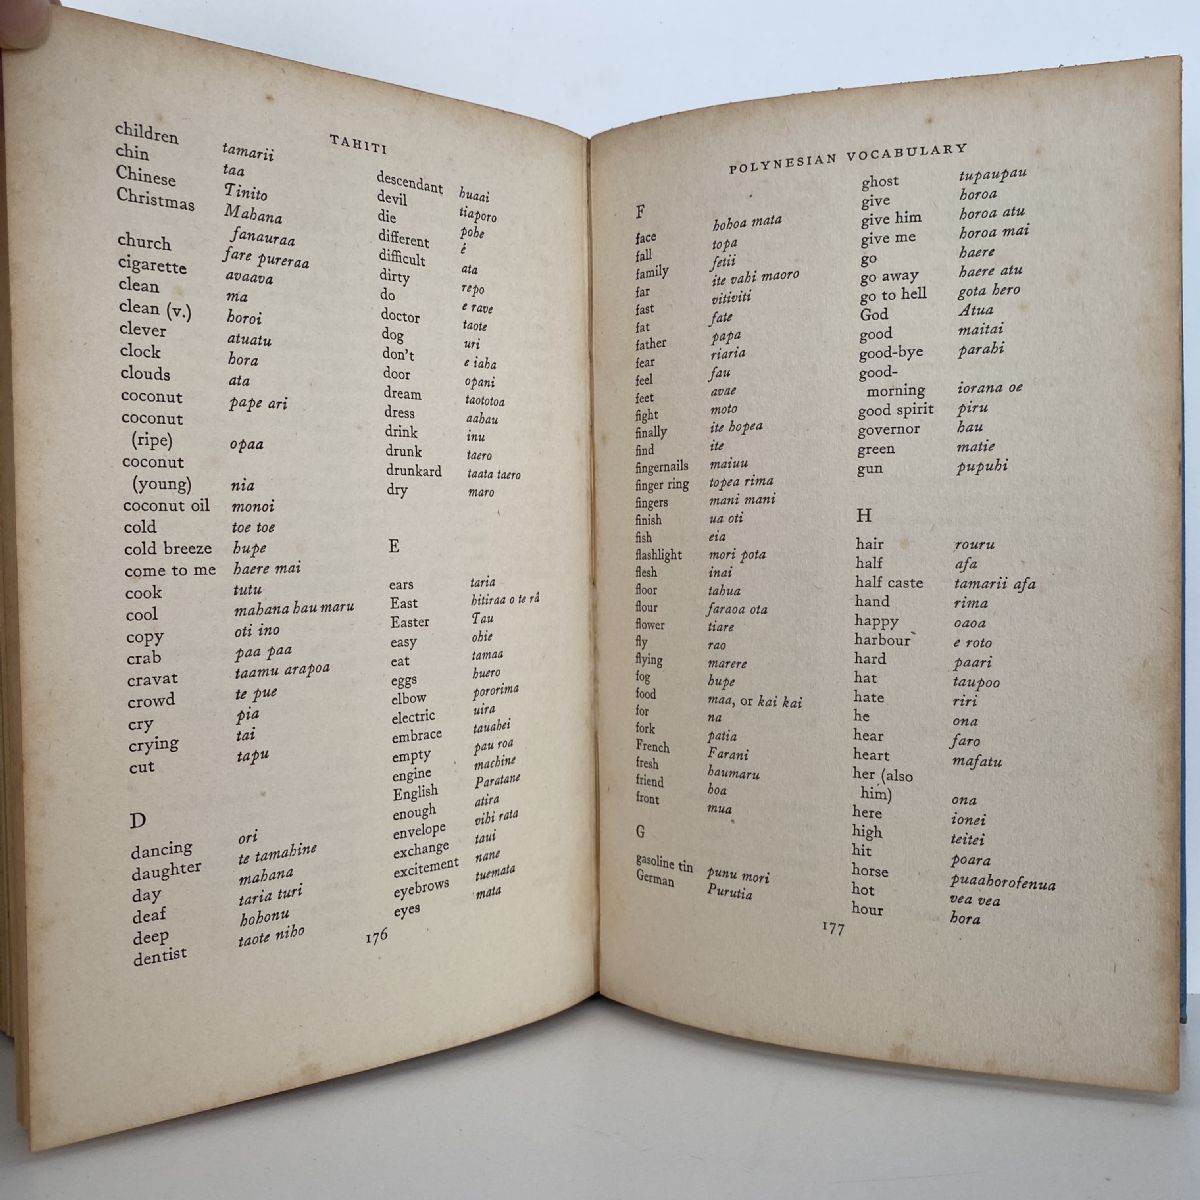 TAHITI
children tamarii
chin taa
Chinese Tinito
Christmas Mahana
fanauraa
church fare pureraa
cigarette avaava
clean ma
clean (v.) horoi
clever atuatu
clock hora
clouds ata
coconut pape ari
coconut
(ripe) opaa
coconut
(young) nia
coconut oil monoi
cold toe toe
cold breeze hupe
come to me haere mai
cook tutu
cool mahana hau maru
copy oti ino
crab paa paa
cravat taamu arapoa
crowd te pue
cry pia
crying tai
cut tapu
D
dancing ori
daughter te tamahine
day mahana
deaf taria turi
deep hohonu
dentist taote niho
descendant huaai
devil tiaporo
die pohe
different ê
difficult ata
dirty repo
do e rave
doctor taote
dog uri
don't e iaha
door opani
dream taototoa
dress aahau
drink inu
drunk taero
drunkard taata taero
dry maro
E
ears taria
East hitiraa o te râ
Easter Tau
easy ohie
eat tamaa
eggs huero
elbow pororima
electric uira
embrace tauahei
empty pau roa
engine machine
English Paratane
enough atira
envelope vihi rata
exchange taui
excitement nane
eyebrows tuemata
eyes mata
176
POLYNESIAN VOCABULARY
F
face hohoa mata
fall topa
family fetii
far ite vahi maoro
fast vitiviti
fat fate
father papa
fear riaria
feel fau
feet avae
fight moto
finally ite hopea
find ite
fingernails maiuu
finger ring topea rima
fingers mani mani
finish ua oti
fish eia
flashlight mori pota
flesh inai
floor tahua
flour faraoa ota
flower tiare
fly rao
flying marere
fog hupe
food maa, or kai kai
for na
fork patia
French Farani
fresh haumaru
friend hoa
front mua
G
gasoline tin punu mori
German Purutia
ghost tupaupau
give horoa
give him horoa atu
give me horoa mai
go haere
go away haere atu
go to hell gota hero
God Atua
good maitai
good-bye parahi
good-
morning iorana oe
good spirit piru
governor hau
green matie
gun pupuhi
H
hair rouru
half afa
half caste tamarii afa
hand rima
happy oaoa
harbour e roto
hard paari
hat taupoo
hate riri
he ona
hear faro
heart mafatu
her (also
him) ona
here ionei
high teitei
hit poara
horse puaahorofenua
hot vea vea
hour hora
177